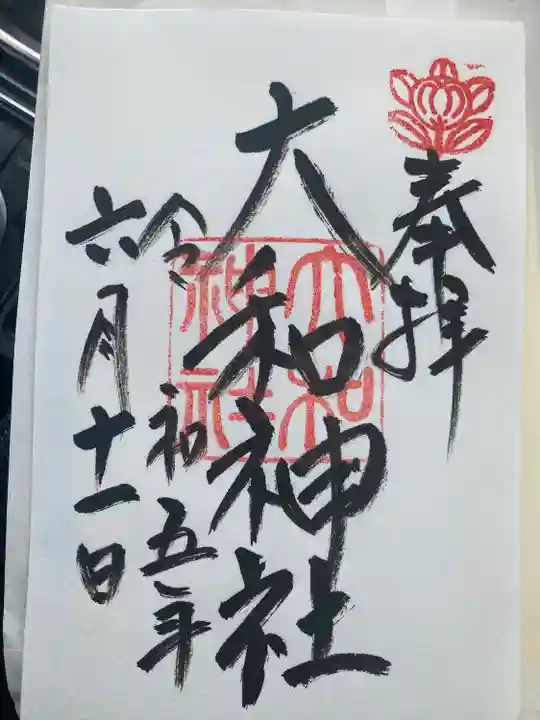 奉拝
大和神社
大和神社
令和五年
六月十一日